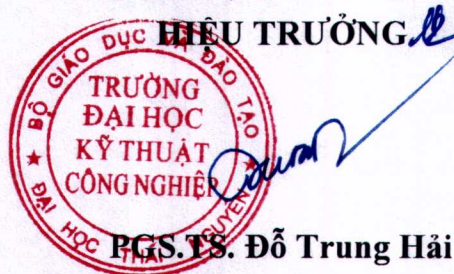 HIỆU TRƯỞNG
BỘ GIÁO DỤC VÀ ĐÀO TẠO
TRƯỜNG
ĐẠI HỌC
KỸ THUẬT
CÔNG NGHIỆP
★ ĐẠI HỌC THÁI NGUYÊN ★
PGS.TS. Đỗ Trung Hải